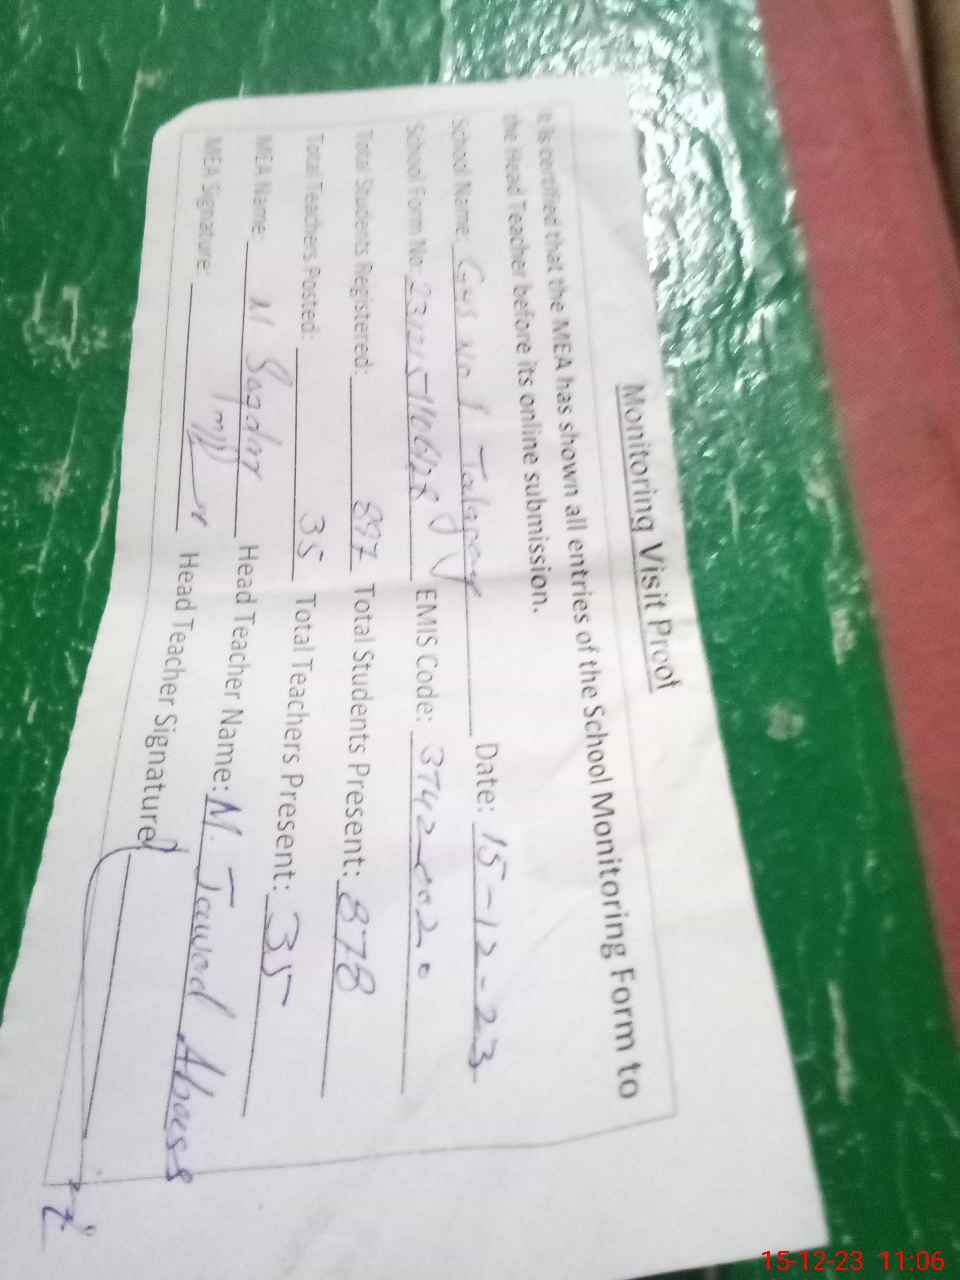 Monitoring Visit Proof
It is certified that the MEA has shown all entries of the School Monitoring Form to
the Head Teacher before its online submission.
School Name: GHS No 1 Talagang Date: 15-12-23
School Form No: EMIS Code: 37420020
Total Students Registered: 897 Total Students Present: 878
Total Teachers Posted: 35 Total Teachers Present: 35
MEA Name: M Head Teacher Name: M. Jawad Abass
MEA Signature: Head Teacher Signature
15-12-23 11:06